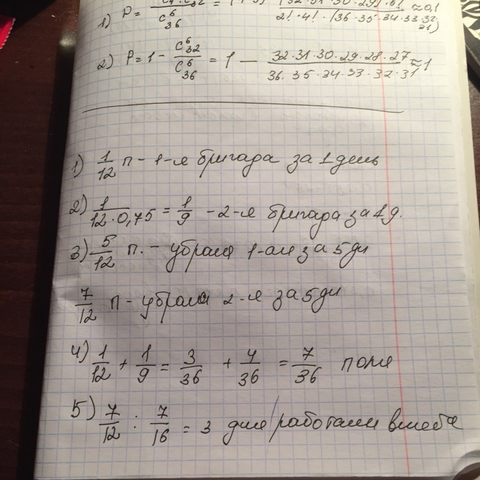 1) P =
C⁶₃₆
2! · 4! · 36·35·34·33·32
31)
2) P = 1 - C⁶₃₂ / C⁶₃₆ = 1 - 32·31·30·29·28·27 / 36·35·34·33·32·31 ≈ 1
1) 1/12 п - 1-я бригада за 1 день
2) 1/12·0,75 = 1/9 - 2-я бригада за 1 д.
3) 5/12 п. - убрала 1-ая за 5 дн
7/12 п - убрали 2-я за 5 дн
4) 1/12 + 1/9 = 3/36 + 4/36 = 7/36 поля
5) 7/12 : 7/16 = 3 дня работали вместе